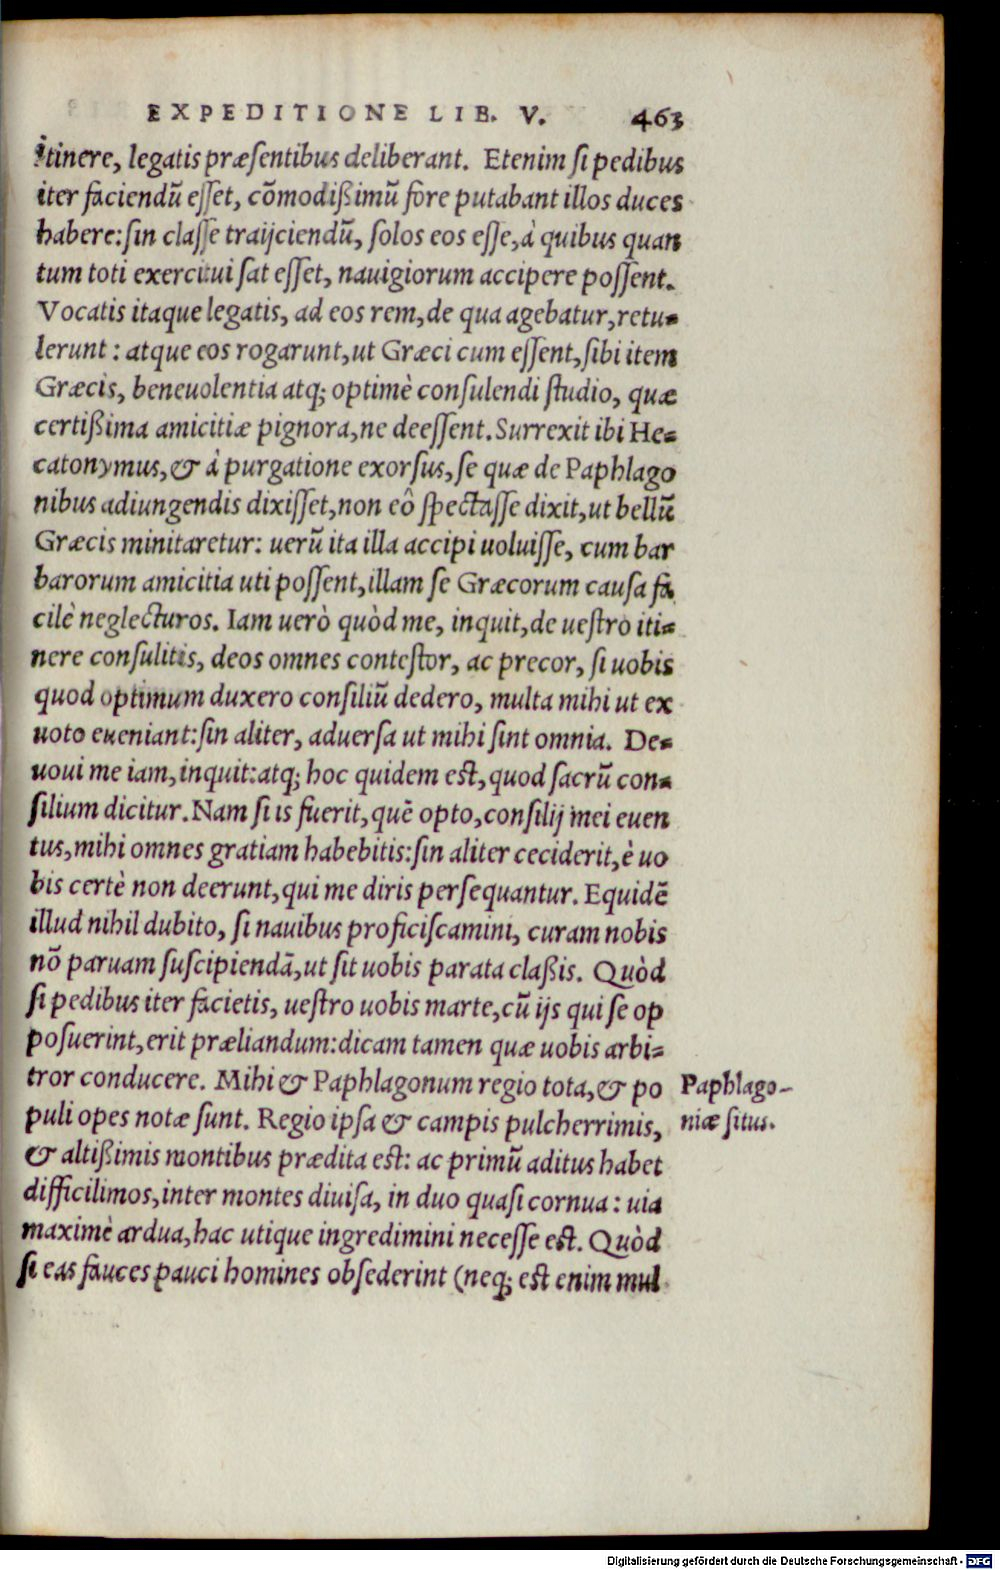 EXPEDITIONE LIB. V. 463
itinere, legatis præsentibus deliberant. Etenim si pedibus
iter faciendũ esset, cõmodißimũ fore putabant illos duces
habere: sin classe traijciendũ, solos eos esse, à quibus quan
tum toti exercitui sat esset, nauigiorum accipere possent.
Vocatis itaque legatis, ad eos rem, de qua agebatur, retu=
lerunt: atque eos rogarunt, ut Græci cum essent, sibi item
Græcis, beneuolentia atq; optimè consulendi studio, quæ
certißima amicitiæ pignora, ne deessent. Surrexit ibi He=
catonymus, & à purgatione exorsus, se quæ de Paphlago
nibus adiungendis dixisset, non eô spectasse dixit, ut bellũ
Græcis minitaretur: uerũ ita illa accipi uoluisse, cum bar
barorum amicitia uti possent, illam se Græcorum causa fa
cilè neglecturos. Iam uerò quòd me, inquit, de uestro iti=
nere consulitis, deos omnes contestor, ac precor, si uobis
quod optimum duxero consiliũ dedero, multa mihi ut ex
uoto eueniant: sin aliter, aduersa ut mihi sint omnia. De=
uoui me iam, inquit: atq; hoc quidem est, quod sacrũ con=
silium dicitur. Nam si is fuerit, quẽ opto, consilij mei euen
tus, mihi omnes gratiam habebitis: sin aliter ceciderit, è uo
bis certè non deerunt, qui me diris persequantur. Equidẽ
illud nihil dubito, si nauibus proficiscamini, curam nobis
nõ paruam suscipiendã, ut sit uobis parata claßis. Quòd
si pedibus iter facietis, uestro uobis marte, cũ ijs qui se op
posuerint, erit præliandum: dicam tamen quæ uobis arbi=
tror conducere. Mihi & Paphlagonum regio tota, & po
puli opes notæ sunt. Regio ipsa & campis pulcherrimis,
& altißimis montibus prædita est: ac primũ aditus habet
difficilimos, inter montes diuisa, in duo quasi cornua: uia
maximè ardua, hac utique ingredimini necesse est. Quòd
si eas fauces pauci homines obsederint (neq; est enim mul
Paphlago-
niæ situs.
Digitalisierung gefördert durch die Deutsche Forschungsgemeinschaft - DFG